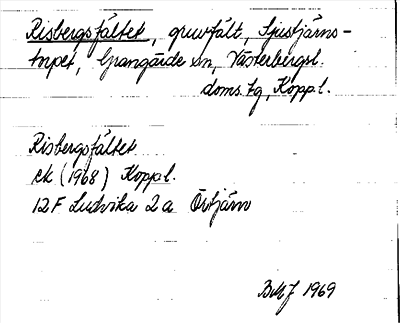 Risbergsfältet, gruvfält, Ljustjärns-
torpet, Grangärde sn, Västerbergsl.
doms.tg, Koppl.
Risbergsfältet
ek (1968) Koppl.
12F Ludvika 2a Övtjärn
1969